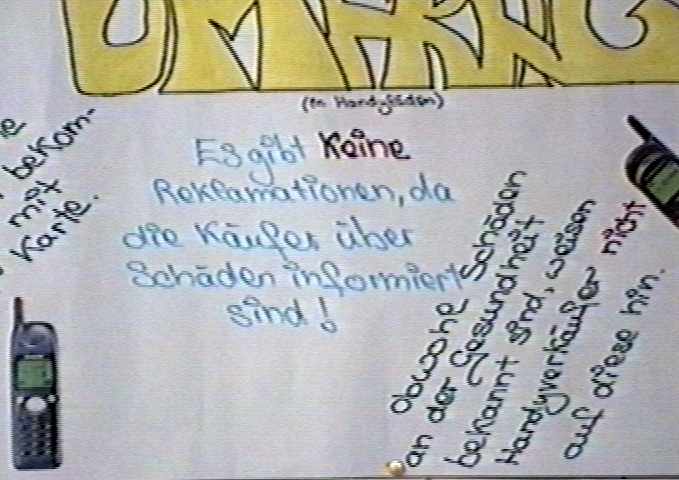 UMFRAGE
(in Handyläden)
Es gibt keine
Reklamationen, da
die Käufer über
Schäden informiert
sind!
bekom-
mit
Karte.
obwohl Schäden
an der Gesundheit
bekannt sind, weisen
Handyverkäufer nicht
auf diese hin.